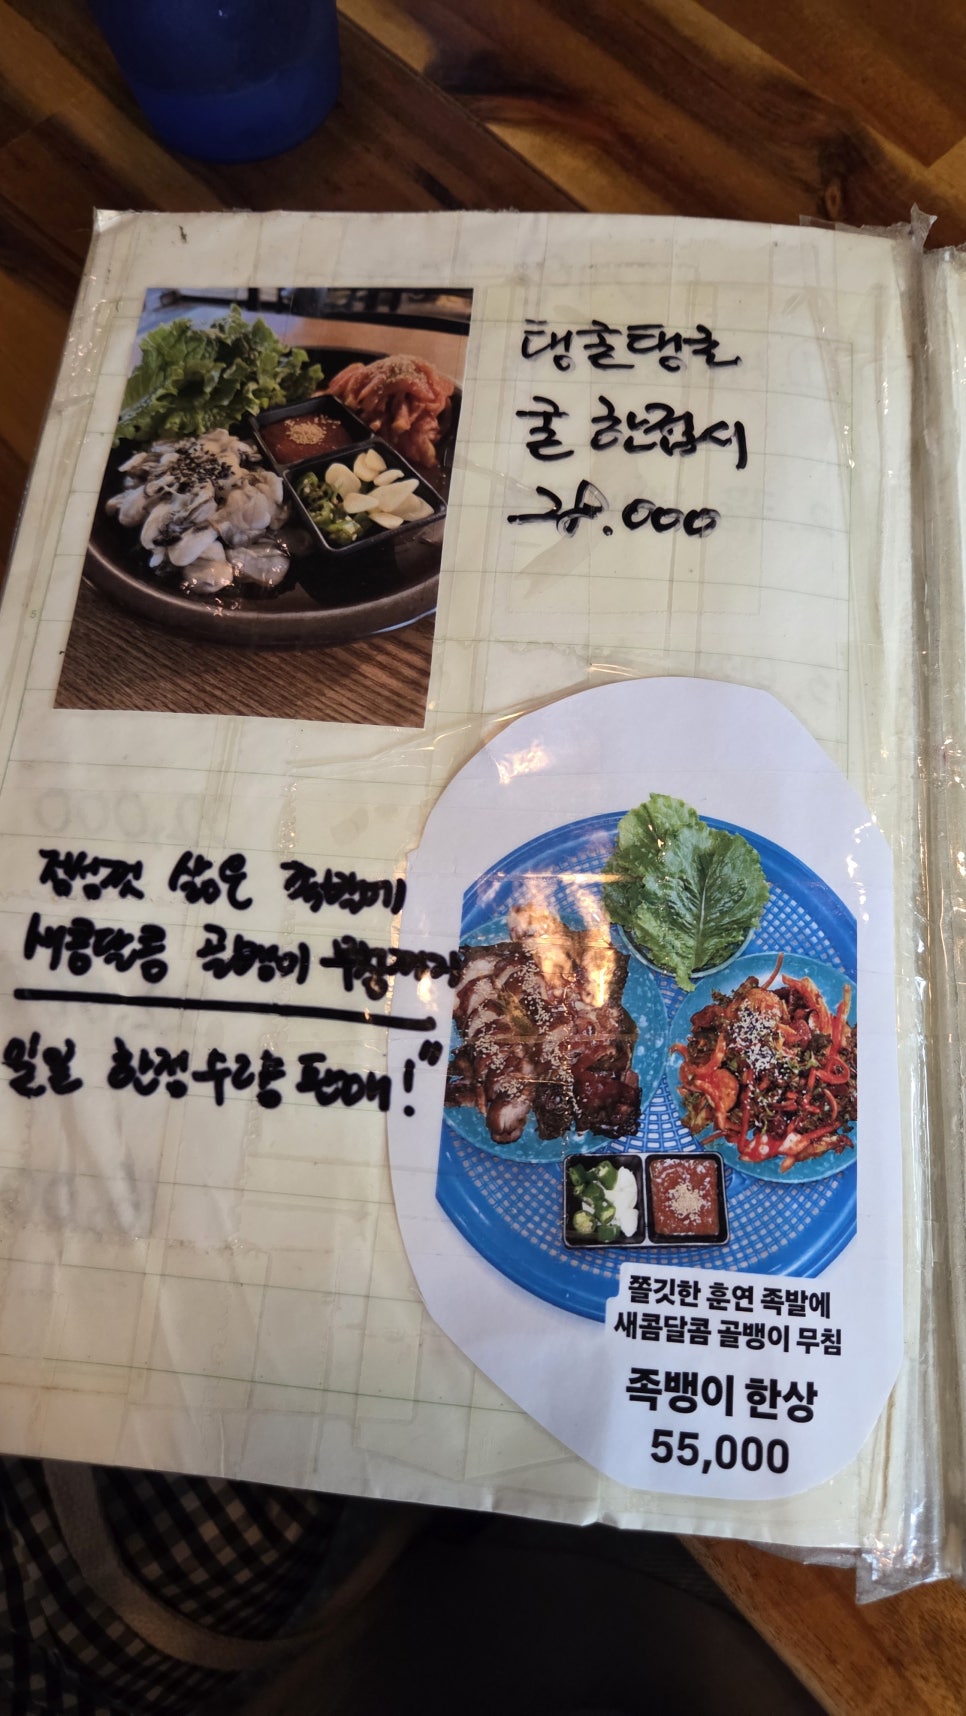 탱굴탱굴
굴 한접시
.000
정성껏 삶은 족발에
새콤달콤 골뱅이 무침까지
매일 한정수량 판매!"
쫄깃한 훈연 족발에
새콤달콤 골뱅이 무침
족뱅이 한상
55,000